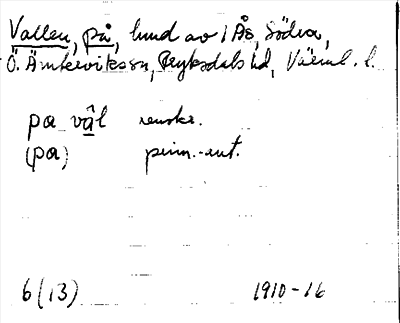 Vallen, på, lund av 1 Ås, Södra,
Ö. Ämtervikssn, Fryksdals hd, Värml. l.
pa vål renskr.
(pa) prim.-ant.
6(13) 1910-16